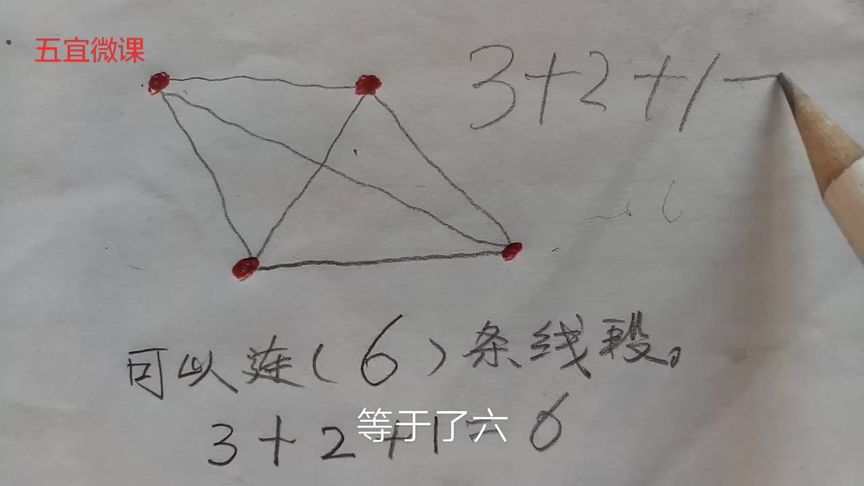 五宜微课
3+2+1-
可以连(6)条线段。
3+2+1=6
等于了六